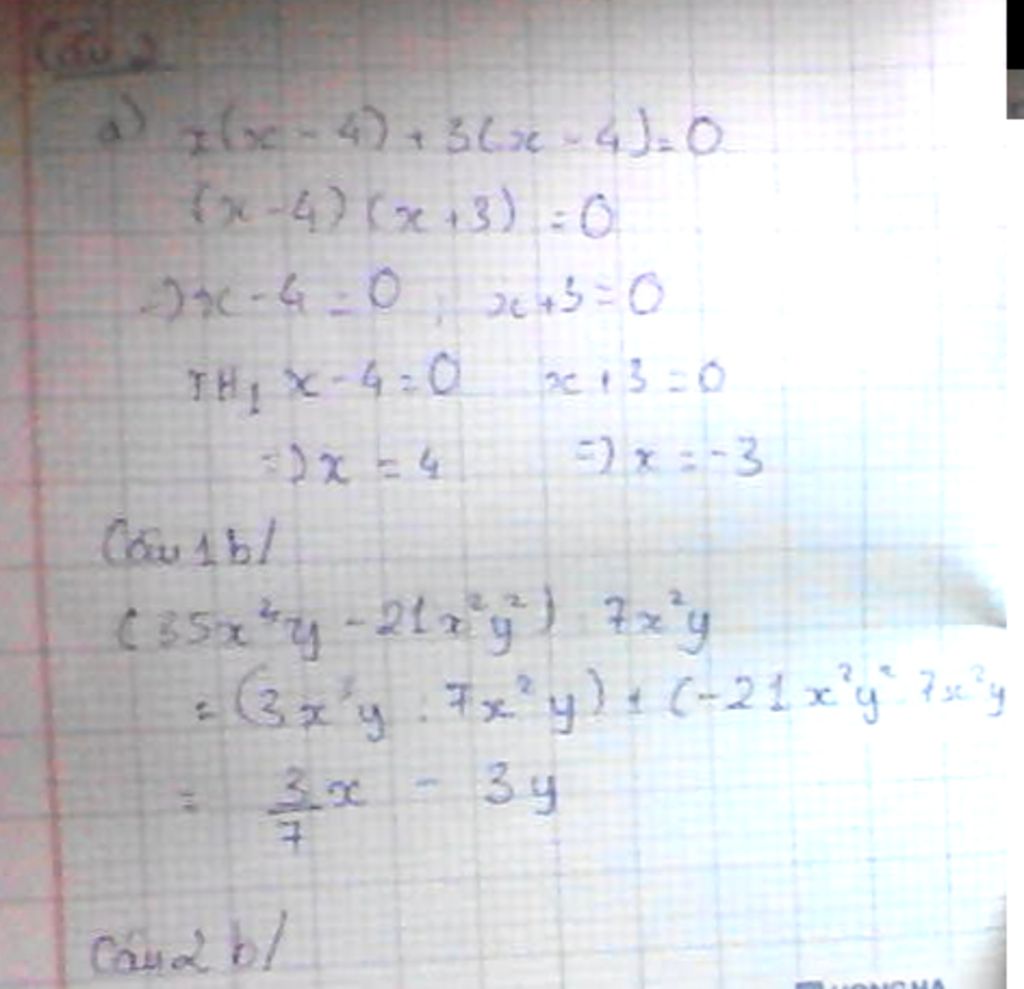 Câu 2
a) x(x - 4) + 3(x - 4) = 0
(x - 4) (x + 3) = 0
=> x - 4 = 0 ; x + 3 = 0
TH1 x - 4 = 0 x + 3 = 0
=> x = 4 => x = -3
Câu 1 b/
(35x⁴y - 21x²y²) : 7x²y
= (3x³y : 7x²y) + (-21x²y² : 7x²y
= 3/7 x - 3y
Câu 2 b/
HONG HA